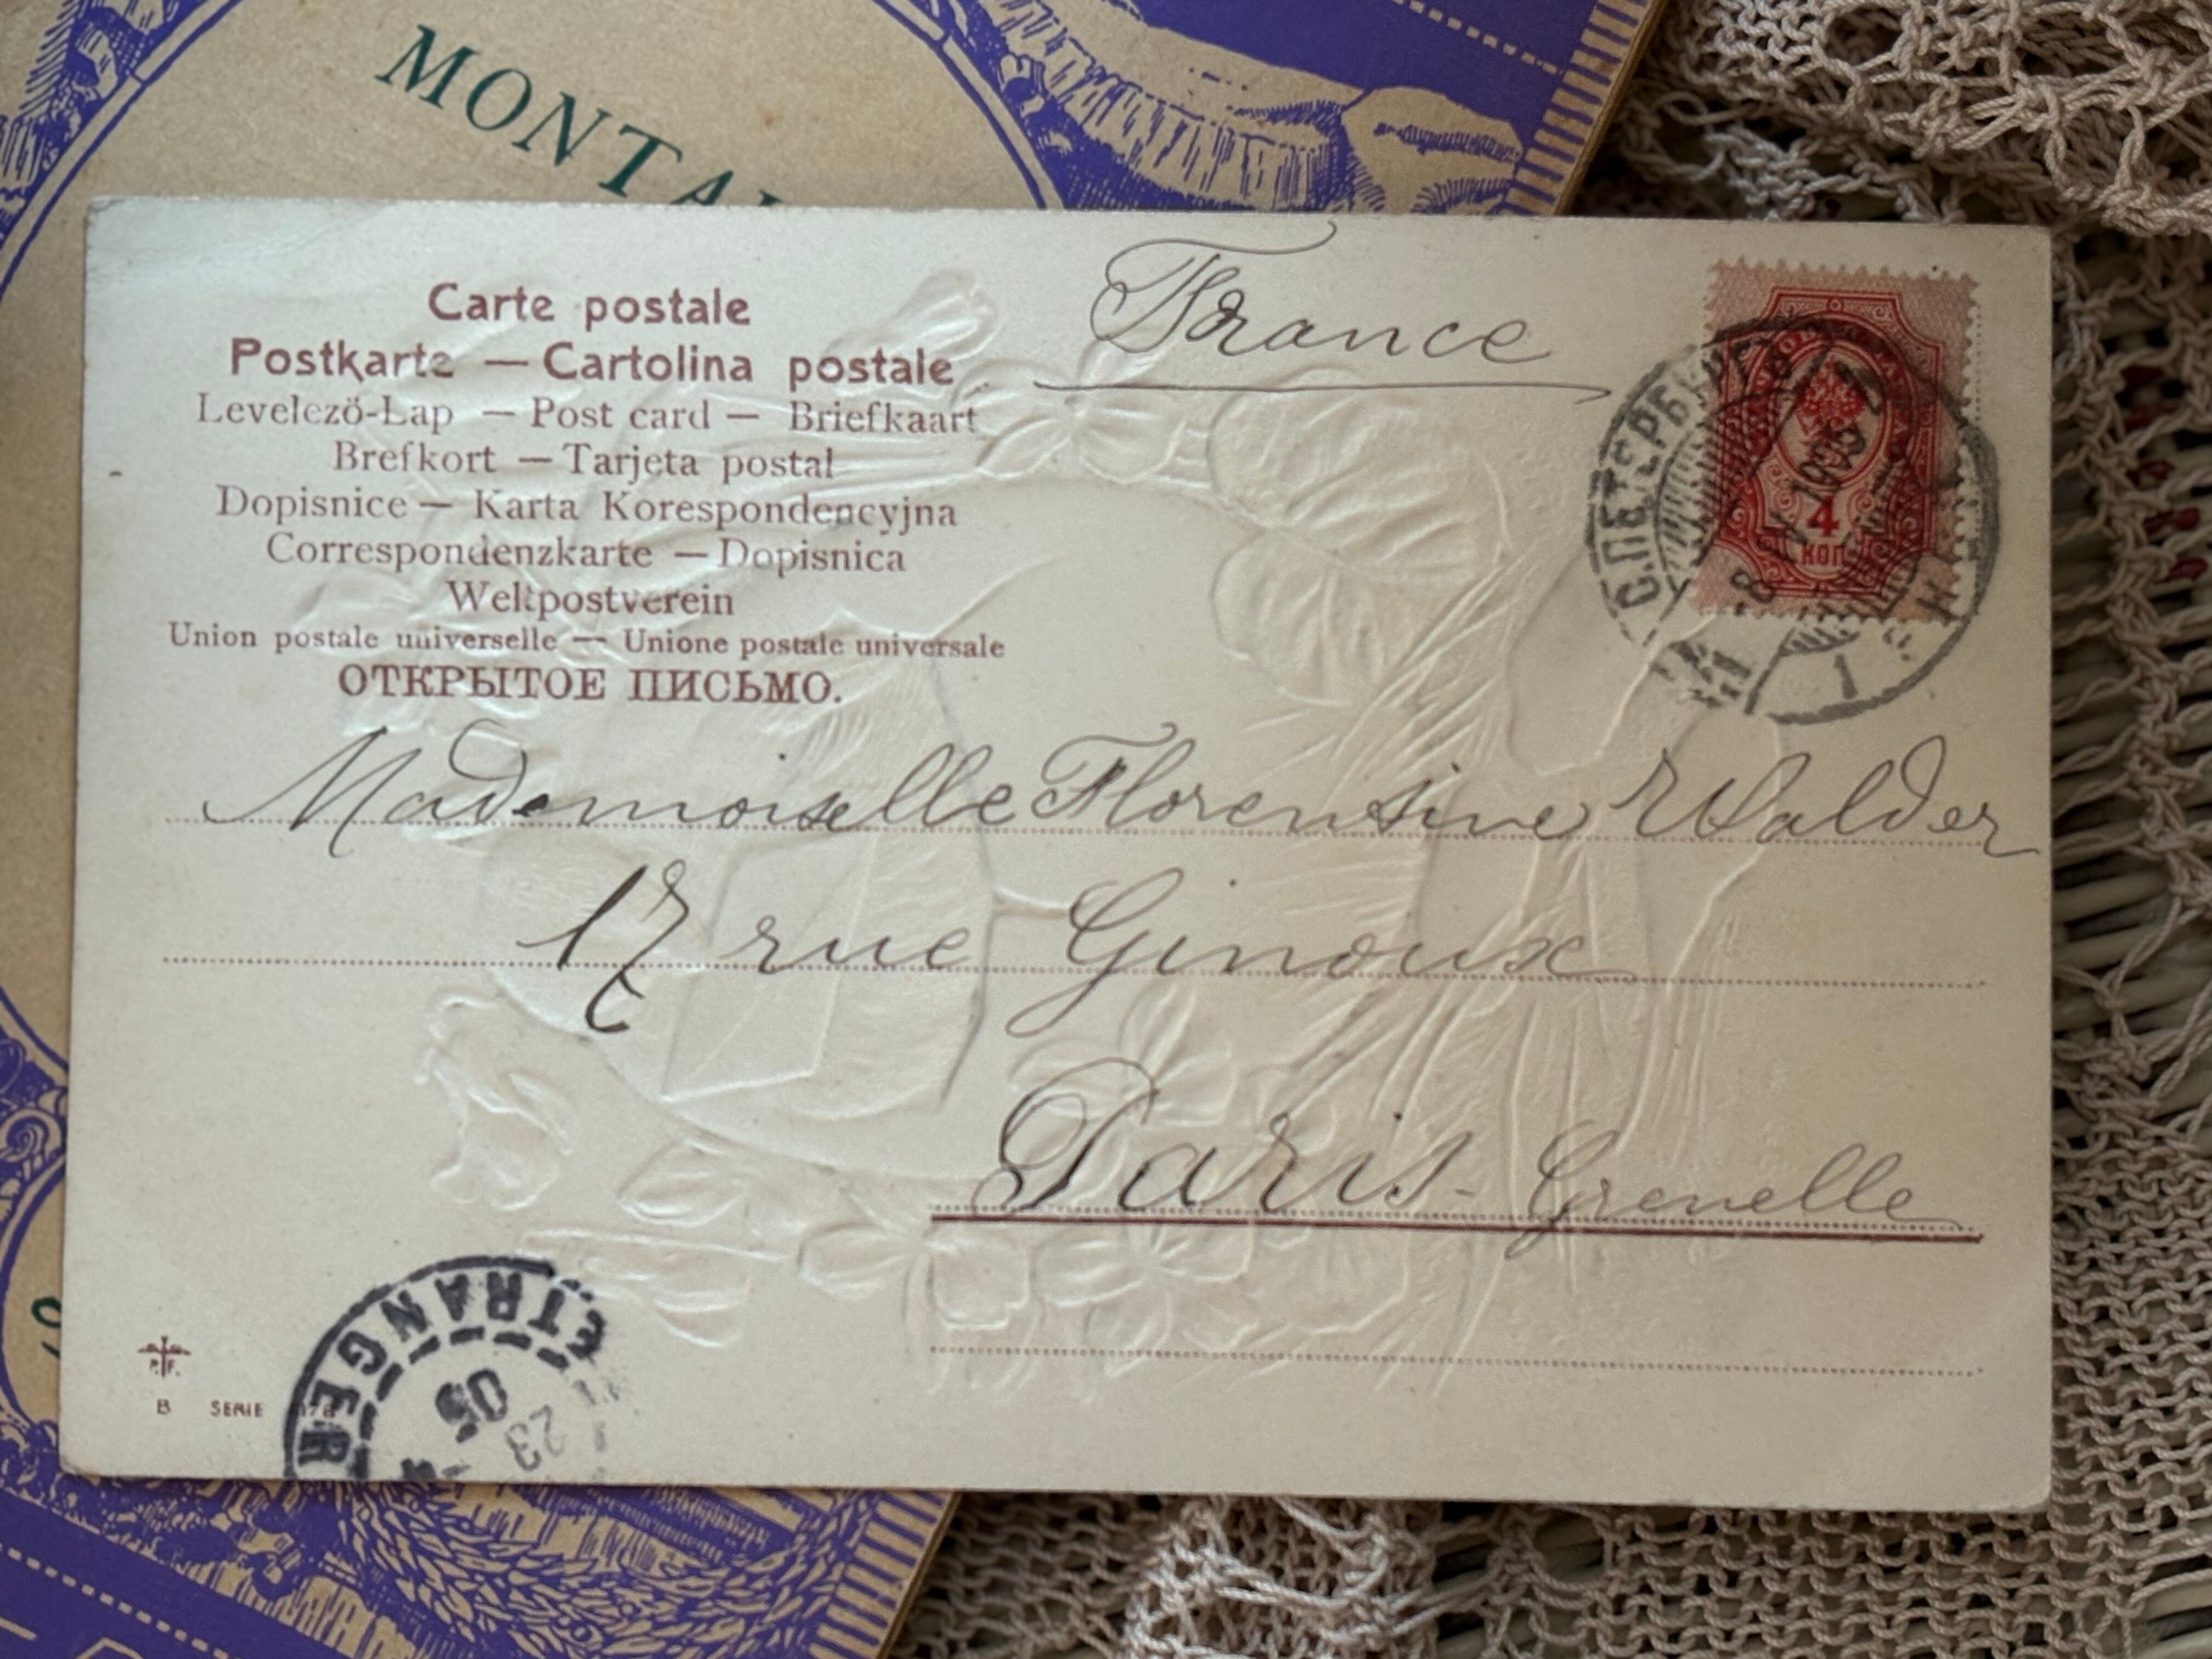 MONTA
Carte postale
Postkarte — Cartolina postale
Levelező-Lap — Post card — Briefkaart
Brefkort — Tarjeta postal
Dopisnice — Karta Korespondencyjna
Correspondenzkarte — Dopisnica
Weltpostverein
Union postale universelle — Unione postale universale
ОТКРЫТОЕ ПИСЬМО.
France
С.ПЕТЕРБУРГЪ
1905
4
КОП
1
Mademoiselle Florentine Walder
17 rue Ginoux
Paris - Grenelle
P. F.
B SERIE
ETRANGER
23
05